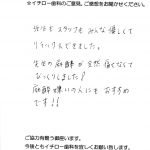 ☆イチロー歯科のご意見、ご感想をお聞かせください。
先生もスタッフもみんな優しくて
リラックスできました。
先生の麻酔が全然痛くなくて
びっくりしました!
麻酔嫌いの人にもおすすめ
です!!
ご協力有難う御座います。
今後ともイチロー歯科を宜しくお願い致します。